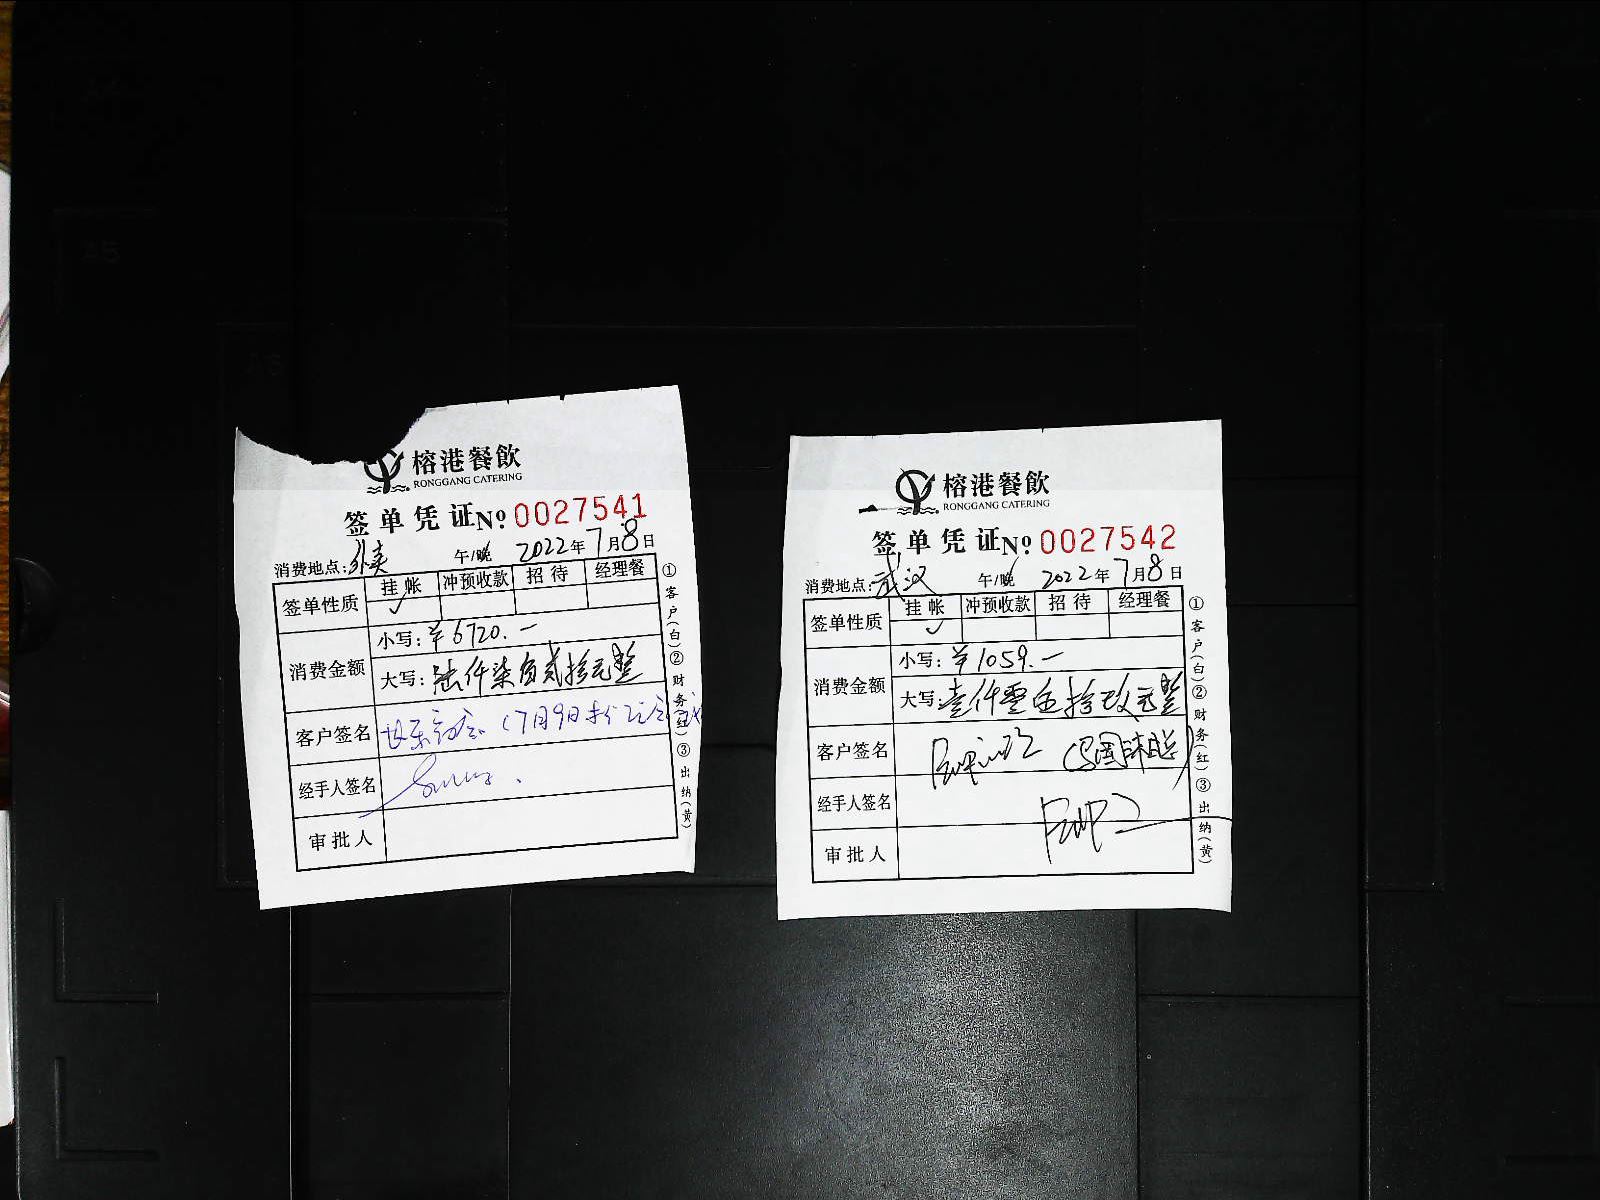 榕港餐飲
RONGGANG CATERING
签单凭证 № 0027541
消费地点: 外卖 午/晚 2022年7月8日
签单性质 挂帐 冲预收款 招待 经理餐
✓
消费金额 小写: ¥6720.一
大写: 陆仟柒佰贰拾元整
客户签名 (7月9日
经手人签名
审批人
①客户(白)②财务(红)③出纳(黄)
榕港餐飲
RONGGANG CATERING
签单凭证 № 0027542
消费地点: 武汉 午/晚 2022年7月8日
签单性质 挂帐 冲预收款 招待 经理餐
✓
消费金额 小写: ¥1059.一
大写: 壹仟零伍拾玖元整
客户签名
经手人签名
审批人
①客户(白)②财务(红)③出纳(黄)
A5
A6